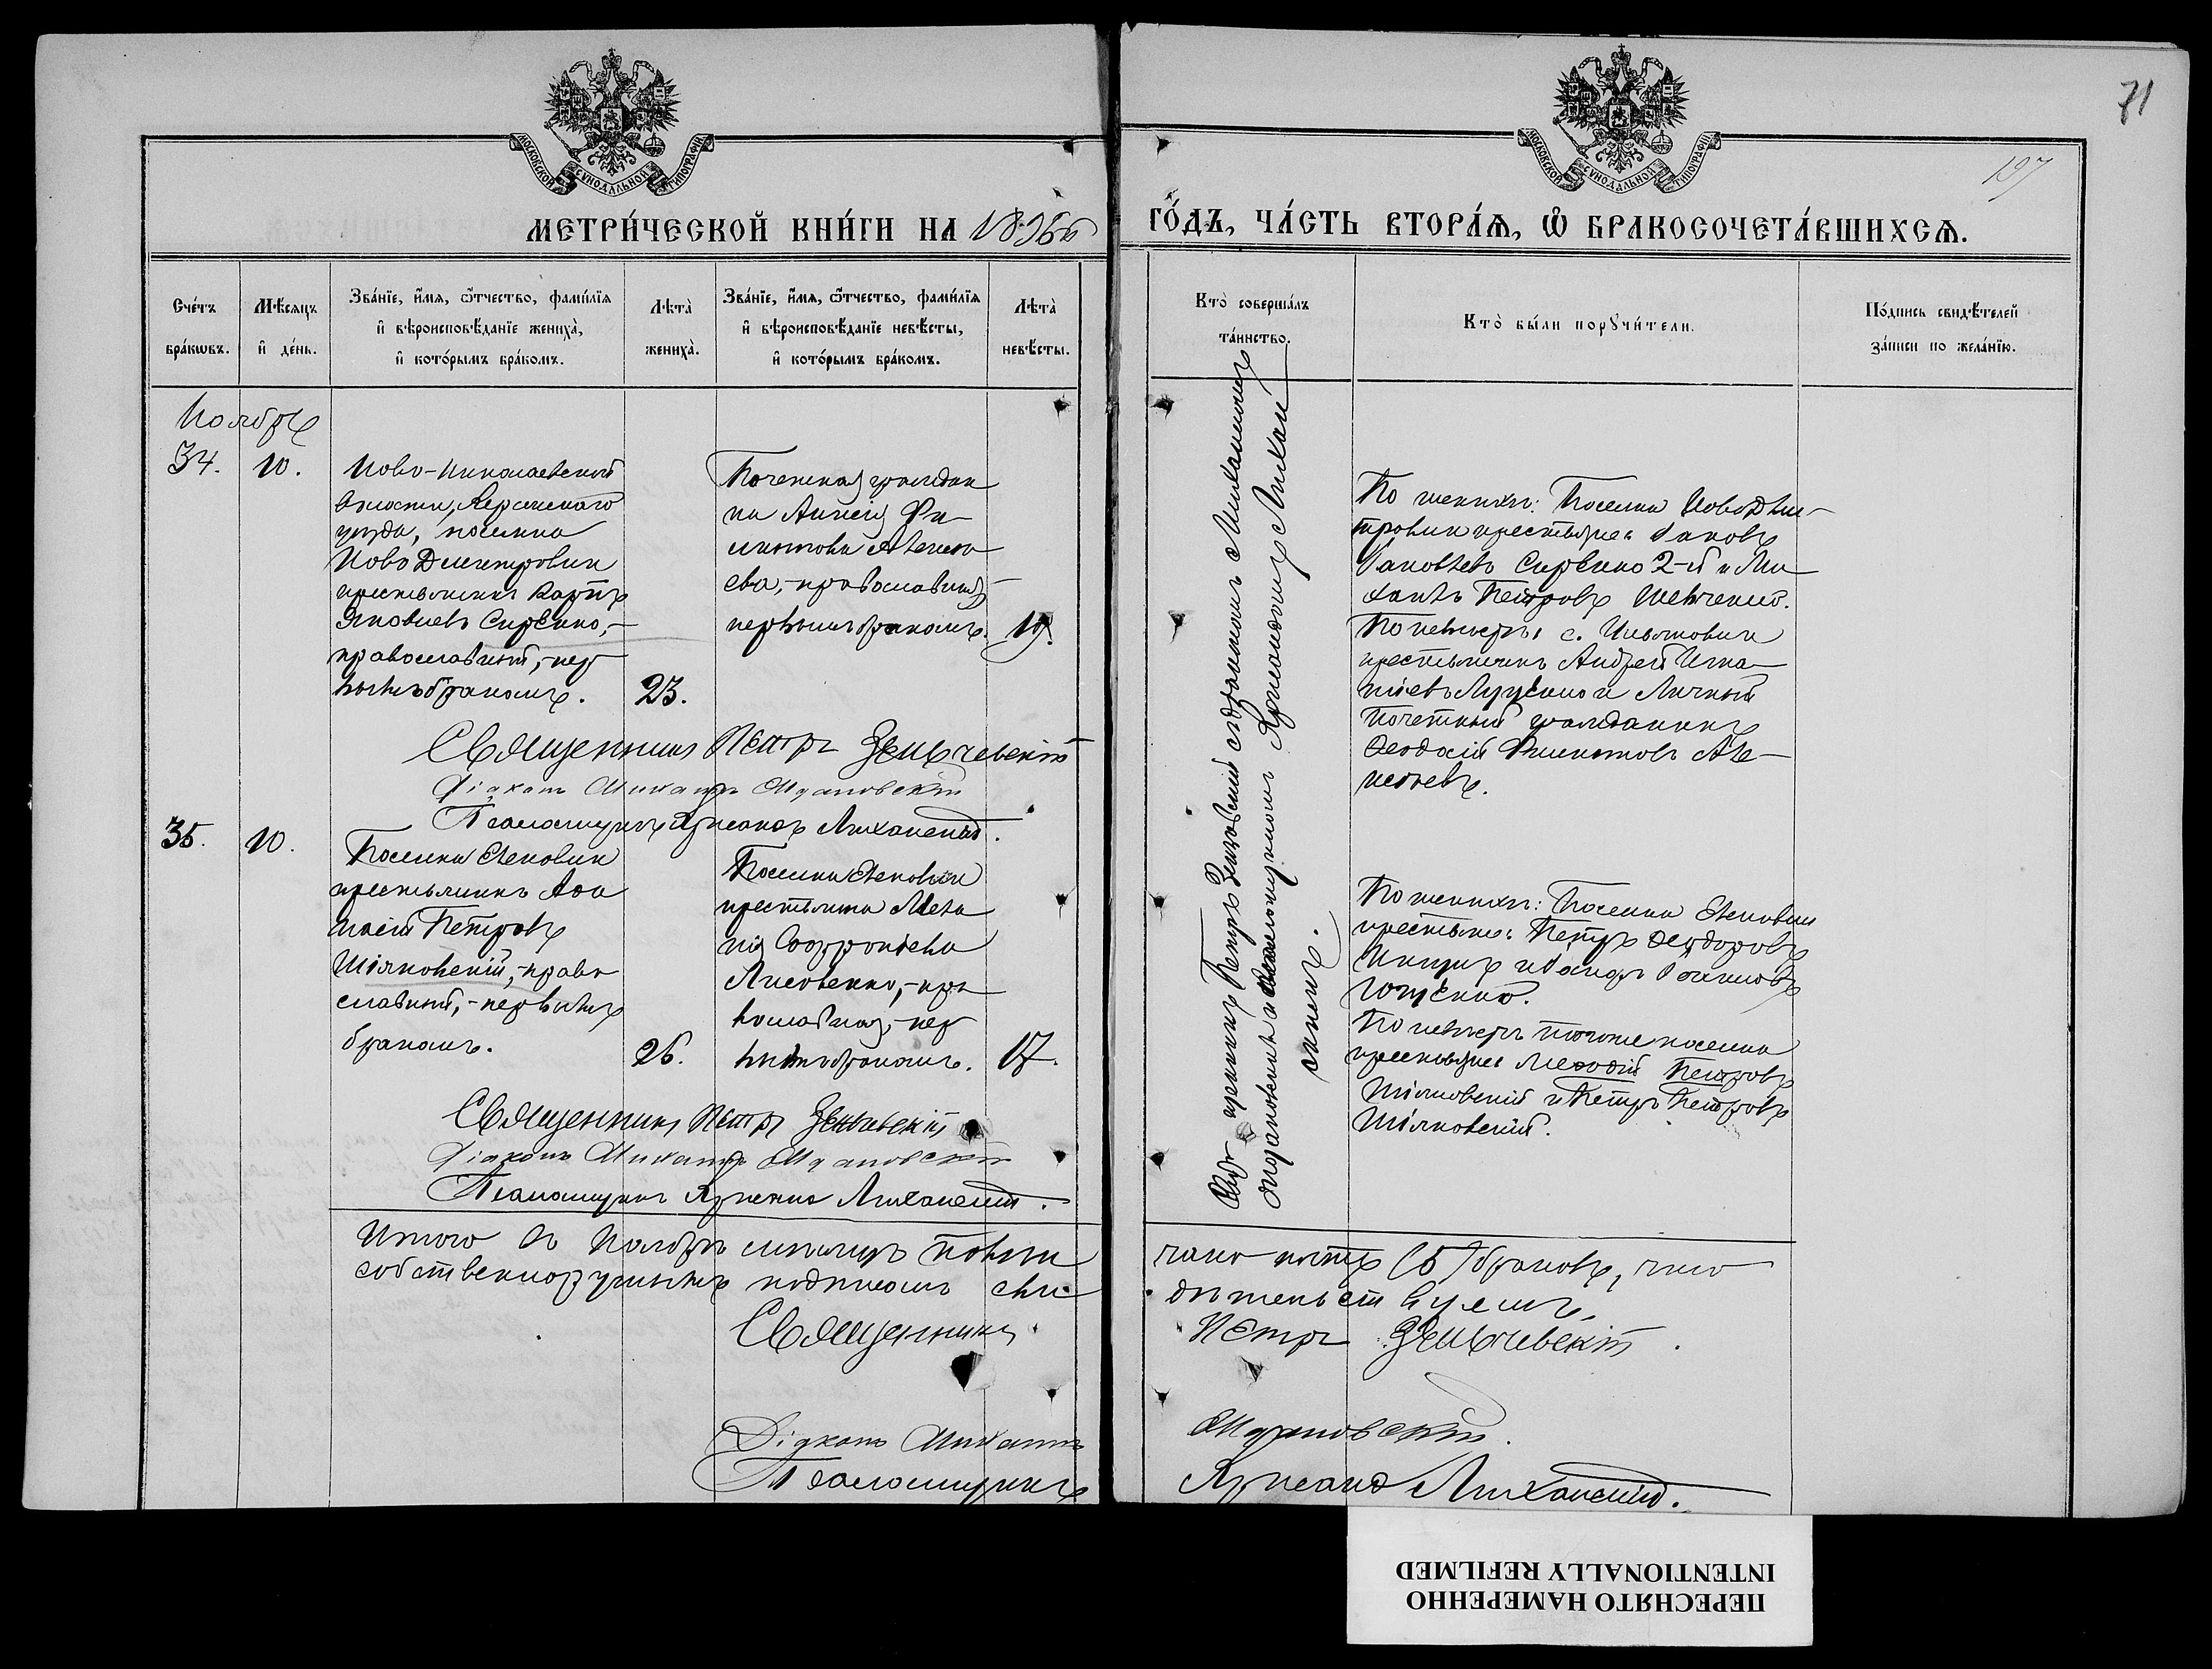 71
107
МОСКОВСКОЙ СУНОДАЛЬНОЙ ТИПОГРАФІИ.
МОСКОВСКОЙ СУНОДАЛЬНОЙ ТИПОГРАФІИ.
МЕТРИ́ЧЕСКОЙ КНИ́ГИ НА 1896й
ГО́ДЪ, ЧА́СТЬ ВТОРА́Я, Ѡ БРАКОСОЧЕТА́ВШИХСЯ.
Сче́тъ
бра́кѡвъ.
Мѣ́сяцъ
и де́нь.
Зва́нїе, и́мя, ѻ́тчество, фами́лїя
и вѣроисповѣ́данїе жениха̀,
и кото́рымъ бра́комъ.
Лѣта̀
жениха̀.
Зва́нїе, и́мя, ѻ́тчество, фами́лїя
и вѣроисповѣ́данїе невѣ́сты,
и кото́рымъ бра́комъ.
Лѣта̀
невѣ́сты.
Кто̀ соверша́лъ
та́инство.
Кто̀ бы́ли порꙋчи́тели.
По́дпись свидѣ́телей
за́писи по жела́нїю.
Ноябрь
34.
10.
Ново-Николаевской
волости, Херсонскаго
уѣзда, поселка
Ново Дмитровки
крестьянинъ Карпъ
Яковлевъ Сиренко,-
православный,-пер
вымъ бракомъ.
23.
Почетная граждан
ка Анисія Фи
лимонова Алексѣ
ева,-православная,-
первымъ бракомъ.
19.
По женихѣ: Поселка Новодми-
тровки крестьяне: Яковъ
Яковлевъ Сиренко 2-й и Ми
хаилъ Петровъ Шевченко.
По невѣстѣ: с.
крестьянинъ Андрей Игна
тіевъ Луценко и Личный
Почетный гражданинъ
Ѳеодосій Филимоновъ Але-
ксѣевъ.
Священникъ Петръ Зеньчевскій
Діаконъ Михаилъ Ждановскій
Псаломщикъ Хрисанфъ Лиханскій.
35.
10.
Поселка Еленовки
крестьянинъ Аѳа
насій Петровъ
Шіяновскій,-право
славный,-первымъ
бракомъ.
26.
Поселка Еленовки
крестьянка Мела
нія Софроніева
Лисовенко,-пра
вославная,-пер
вымъ бракомъ.
17.
По женихѣ: Поселка Еленовки
крестьяне: Петръ Ѳеодоровъ
Мищ и Іаковъ Іоакимовъ
Ющенко.
По невѣстѣ: тогоже поселка
крестьяне: Меѳодій Петровъ
Шіяновскій и Петръ Петровъ
Шіяновскій.
Священникъ Петръ Зеньчевскій
Діаконъ Михаилъ Ждановскій
Псаломщикъ Хрисанфъ Лиханскій.
Священникъ Петръ Зеньчевскій съ діакономъ Михаиломъ
Ждановскимъ и псаломщикомъ Хрисанфомъ Лихан
скимъ.
Итого въ Ноябрѣ мѣсяцѣ повѣн
чано пять (5) браковъ, что
собственноручнымъ подписомъ сви
дѣтельствуемъ,
Священникъ Петръ Зеньчевскій.
Діаконъ Михаилъ Ждановскій.
Псаломщикъ Хрисанфъ Лиханскій.
ПЕРЕСНЯТО НАМЕРЕННО
INTENTIONALLY REFILMED